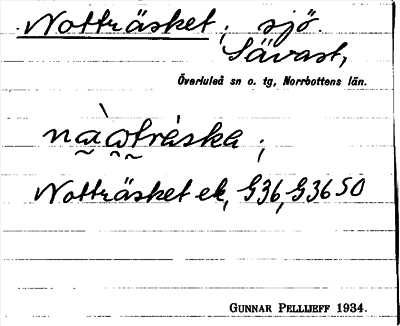 Notträsket; sjö.
Sävast,
Överluleå sn o. tg, Norrbottens län.
nàɷtrèska;
Notträsket ek, G36, G36 SO
GUNNAR PELLIJEFF 1934.